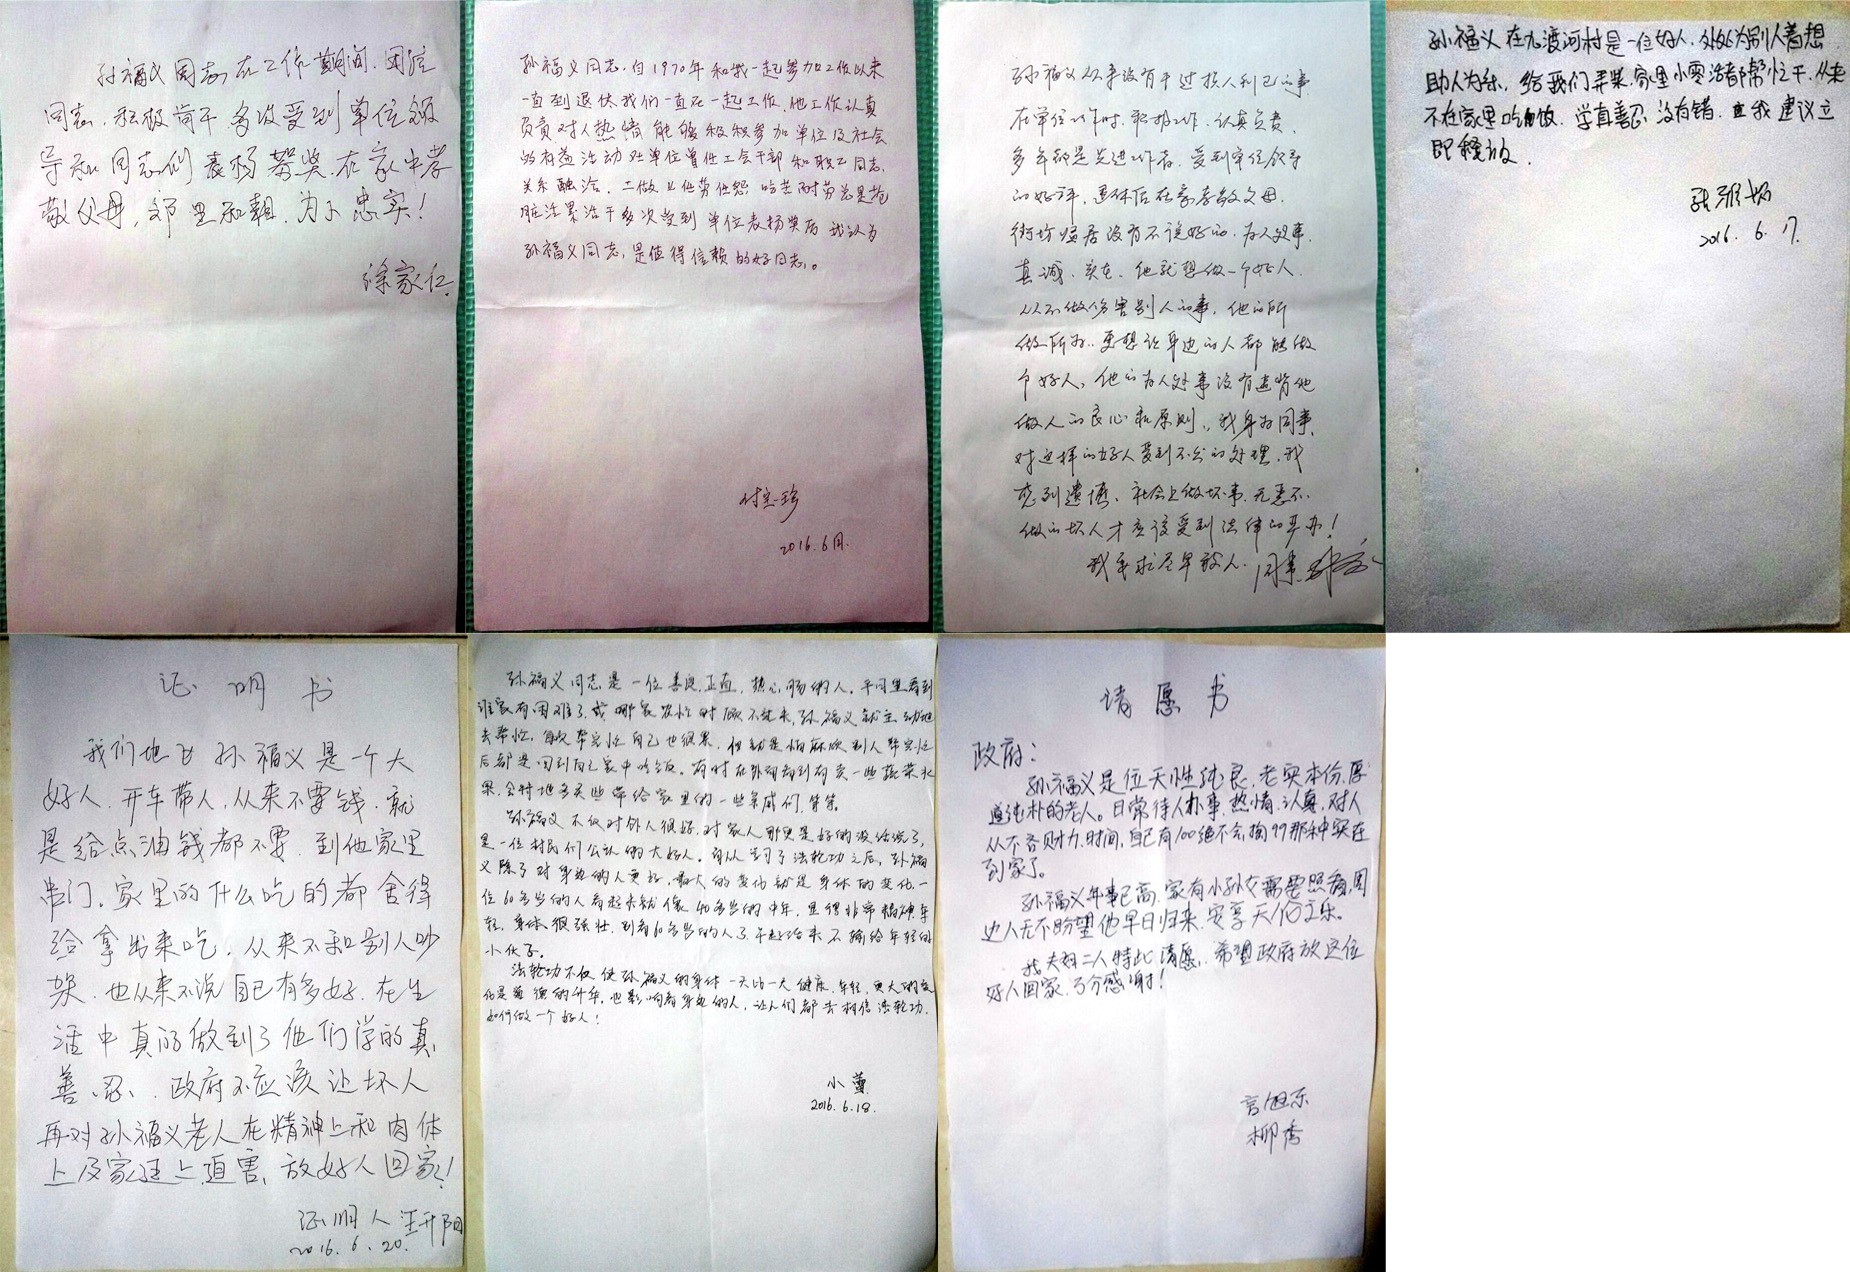 孙福义同志在工作期间,团结
同志,积极苦干多次受到单位领
导和同志们表杨帮奖.在家中孝
敬父母,邻里和睦.为人忠实!
徐家仁.
孙福义同志,自1970年和我一起参加工作以来
一直到退休我们一直在一起工作,他工作认真
负责对人热情能够积极参加单位及社会
的有益活动对单位曾任工会干部和职工同志,
关系融洽。工做上任劳任怨,吃苦耐劳总是抢
脏活累活干多次受到单位表扬奖历我认为
孙福义同志,是值得信赖的好同志。
付宝珍
2016.6月.
孙福义从来没有干过损人利己的事
在单位工作时.积极工作、认真负责、
多年都是先进工作者.受到单位领导
的好评,退休后在家孝敬父母.
街坊邻居没有不说好的.为人处事.
真诚、实在、他就想做一个好人.
从不做伤害别人的事,他的所
做所为.更想让身边的人都能做
个好人,他的为人处事没有违背他
做人的良心和原则,我身为同事.
对这样的好人受到不公的处理,我
感到遗憾、社会上做坏事.无恶不
做的坏人才应该受到法律的严办!
我要求尽早放人. 同事
孙福义在九渡河村是一位好人.处处为别人着想.
助人为乐.给我们弄菜.家里小零活都帮忙干.从来
不在家里吃饭.学真善忍没有错.我建议立
即释放.
2016.6.17.
证明书
我们地区孙福义是一个大
好人.开车带人,从来不要钱.就
是给点油钱都不要.到他家里
串门.家里的什么吃的都舍得
给拿出来吃.从来不和别人吵
架.也从来不说自己有多好.在生
活中真的做到了他们学的真、
善、忍、政府不应该让坏人
再对孙福义老人在精神上和肉体
上及家庭上迫害,放好人回家!
证明人 王开阳
2016.6.20.
孙福义同志是一位善良,正直,热心肠的人。平日里看到
谁家有困难了,或哪家农忙时顾不过来,孙福义就主动地
去帮忙,每次帮完忙自己也很累,但就是怕麻烦别人帮完忙
后都是回到自己家中吃饭。有时在外面看到有卖一些蔬菜水
果,会特地多买些带给家里的一些亲戚们,等等。
孙福义不仅对外人很好,对家人那更是好的没话说了,
是一位村民们公认的大好人。自从学习了法轮功之后,孙福
义除了对身边的人更好,最大的变化就是身体的变化,一
位60多岁的人看起来就像40多岁的中年,显得非常精神,年
轻,身体很强壮,别看60多岁的人了,干起活来不输给年轻的
小伙子。
法轮功不仅使孙福义的身体一天比一天健康,年轻,更大的变
化是道德的升华,也影响着身边的人,让人们都去相信法轮功,
如何做一个好人!
小蕾
2016.6.18.
请愿书
政府:
孙福义是位天性纯良、老实本份,厚
道纯朴的老人。日常待人办事,热情、认真,对人
从不吝财力、时间,自己有100绝不会掏99那种实在
到家了。
孙福义年事已高,家有小孙女需要照看,周
边人无不盼望他早日归来,安享天伦之乐。
我夫妇二人特此请愿,希望政府放这位
好人回家,万分感谢!
柳香